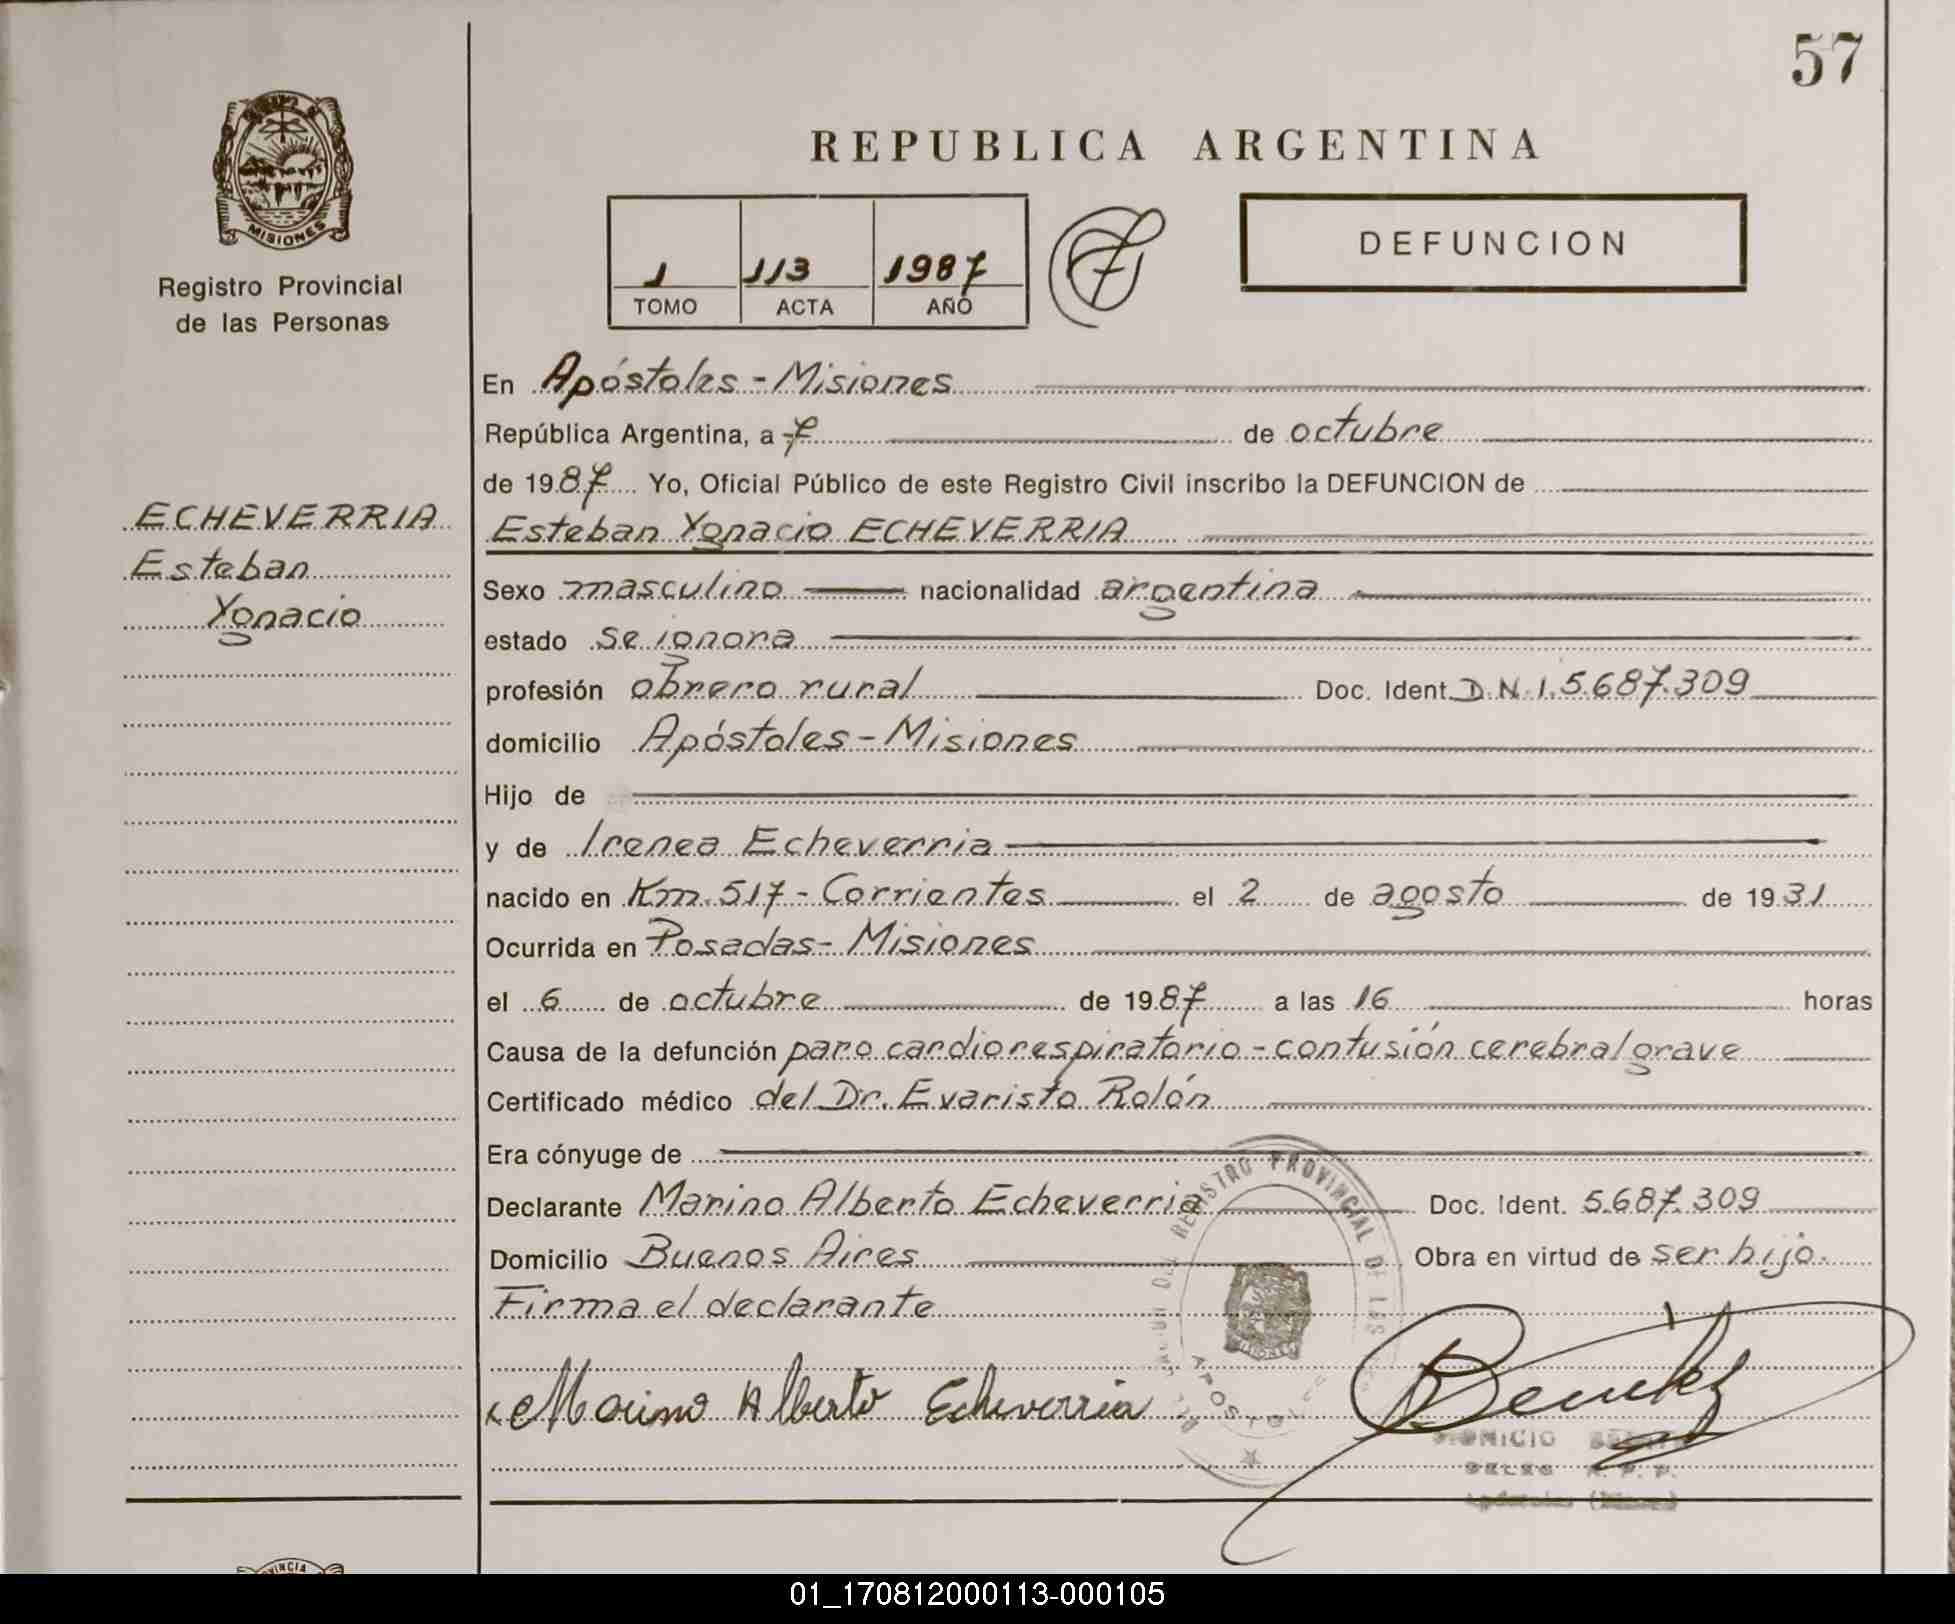 57
MISIONES
Registro Provincial
de las Personas
REPUBLICA ARGENTINA
1 113 1987
TOMO ACTA AÑO
DEFUNCION
ECHEVERRIA
Esteban
Ygnacio
En Apóstoles - Misiones
República Argentina, a 7 de octubre
de 1987 Yo, Oficial Público de este Registro Civil inscribo la DEFUNCION de
Esteban Ygnacio ECHEVERRIA
Sexo masculino nacionalidad argentina
estado se ignora
profesión obrero rural Doc. Ident. D.N.I. 5.687.309
domicilio Apóstoles - Misiones
Hijo de
y de Irenea Echeverria
nacido en Km. 517 - Corrientes el 2 de agosto de 1931
Ocurrida en Posadas - Misiones
el 6 de octubre de 1987 a las 16 horas
Causa de la defunción paro cardiorespiratorio - contusión cerebral grave
Certificado médico del Dr. Evaristo Rolón
Era cónyuge de
Declarante Marino Alberto Echeverria Doc. Ident. 5.687.309
Domicilio Buenos Aires Obra en virtud de ser hijo.
Firma el declarante
x Marino Alberto Echeverria
Benitez
REGISTRO PROVINCIAL DE LAS
APOSTOLES
DIONICIO
DELEG R. P. P.
Apóstoles
VINCIA
01_170812000113-000105